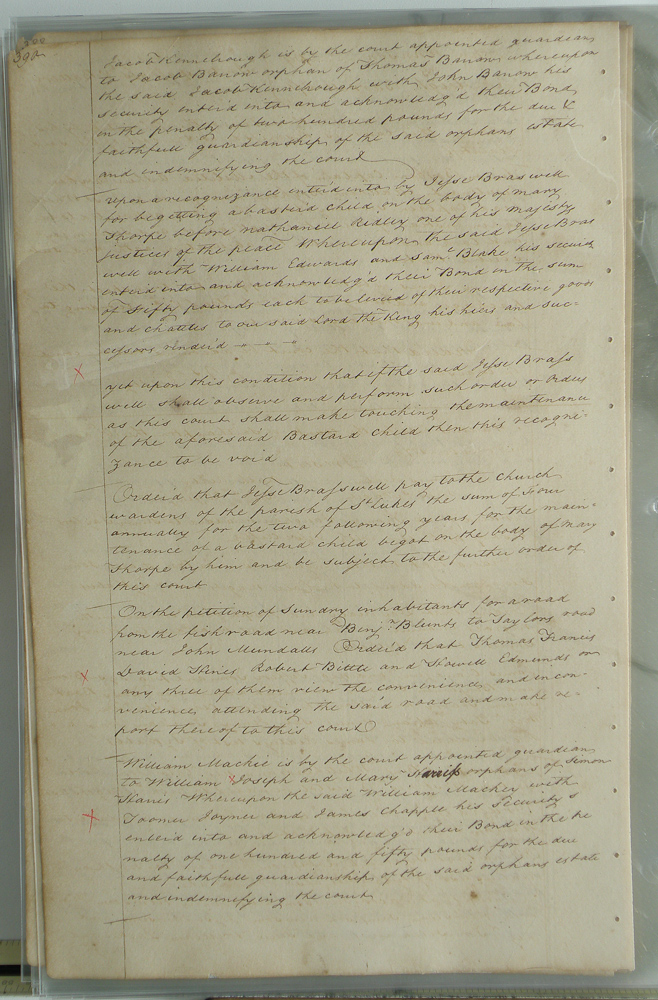 392
Jacob Kennebrough is by the court appointed guardian
to Jacob Barrow orphan of Thomas Barrow whereupon
the said Jacob Kennebrough with John Barrow his
security enter'd into and acknowledg'd their Bond
in the penalty of two hundred pounds for the due &
faithfull guardianship of the said orphans estate
and indemnifying the court
Upon a recognizance enter'd into by Jesse Braswell
for begetting a bastard child on the body of Mary
Thorpe before Nathaniel Ridley one of his majesty
justices of the peace Whereupon the said Jesse Bras
well with William Edwards and Saml. Blake his securi
enter'd into and acknowledg'd their Bond in the sum
of Fifty pounds each to be levied of their respective goods
and chattles to our said Lord the King his hiers and suc=
cessors render'd
yet upon this condition that if the said Jesse Brass
well shall observe and perform such order or Orders
as this court shall make touching the maintenance
of the aforesaid Bastard child then this recogni=
zance to be void
Order'd that Jesse Brasswell pay to the church
wardens of the parish of St. Lukes the sum of Four
annually for the two following years for the main=
tenance of a bastard child begot on the body of Mary
Thorpe by him and be subject to the further order of
this court
On the petition of Sundry inhabitants for a road
from the fish road near Benjn. Blunts to Taylors road
near John Mundalls Order'd that Thomas Francis
David Hines Robert Bittle and Howell Edmunds or
any three of them view the convenience and incon=
venience attending the said road and make re=
port thereof to this court
William Mackie is by the court appointed guardian
to William Joseph and Mary Harriss orphans of Simon
Harris Whereupon the said William Mackey with
Toomer Joyner and James Chapple his Security s
enter'd into and acknowledg'd their Bond in the pe
nalty of one hundred and fifty pounds for the due
and faithfull guardianship of the said orphans estate
and indemnifying the court